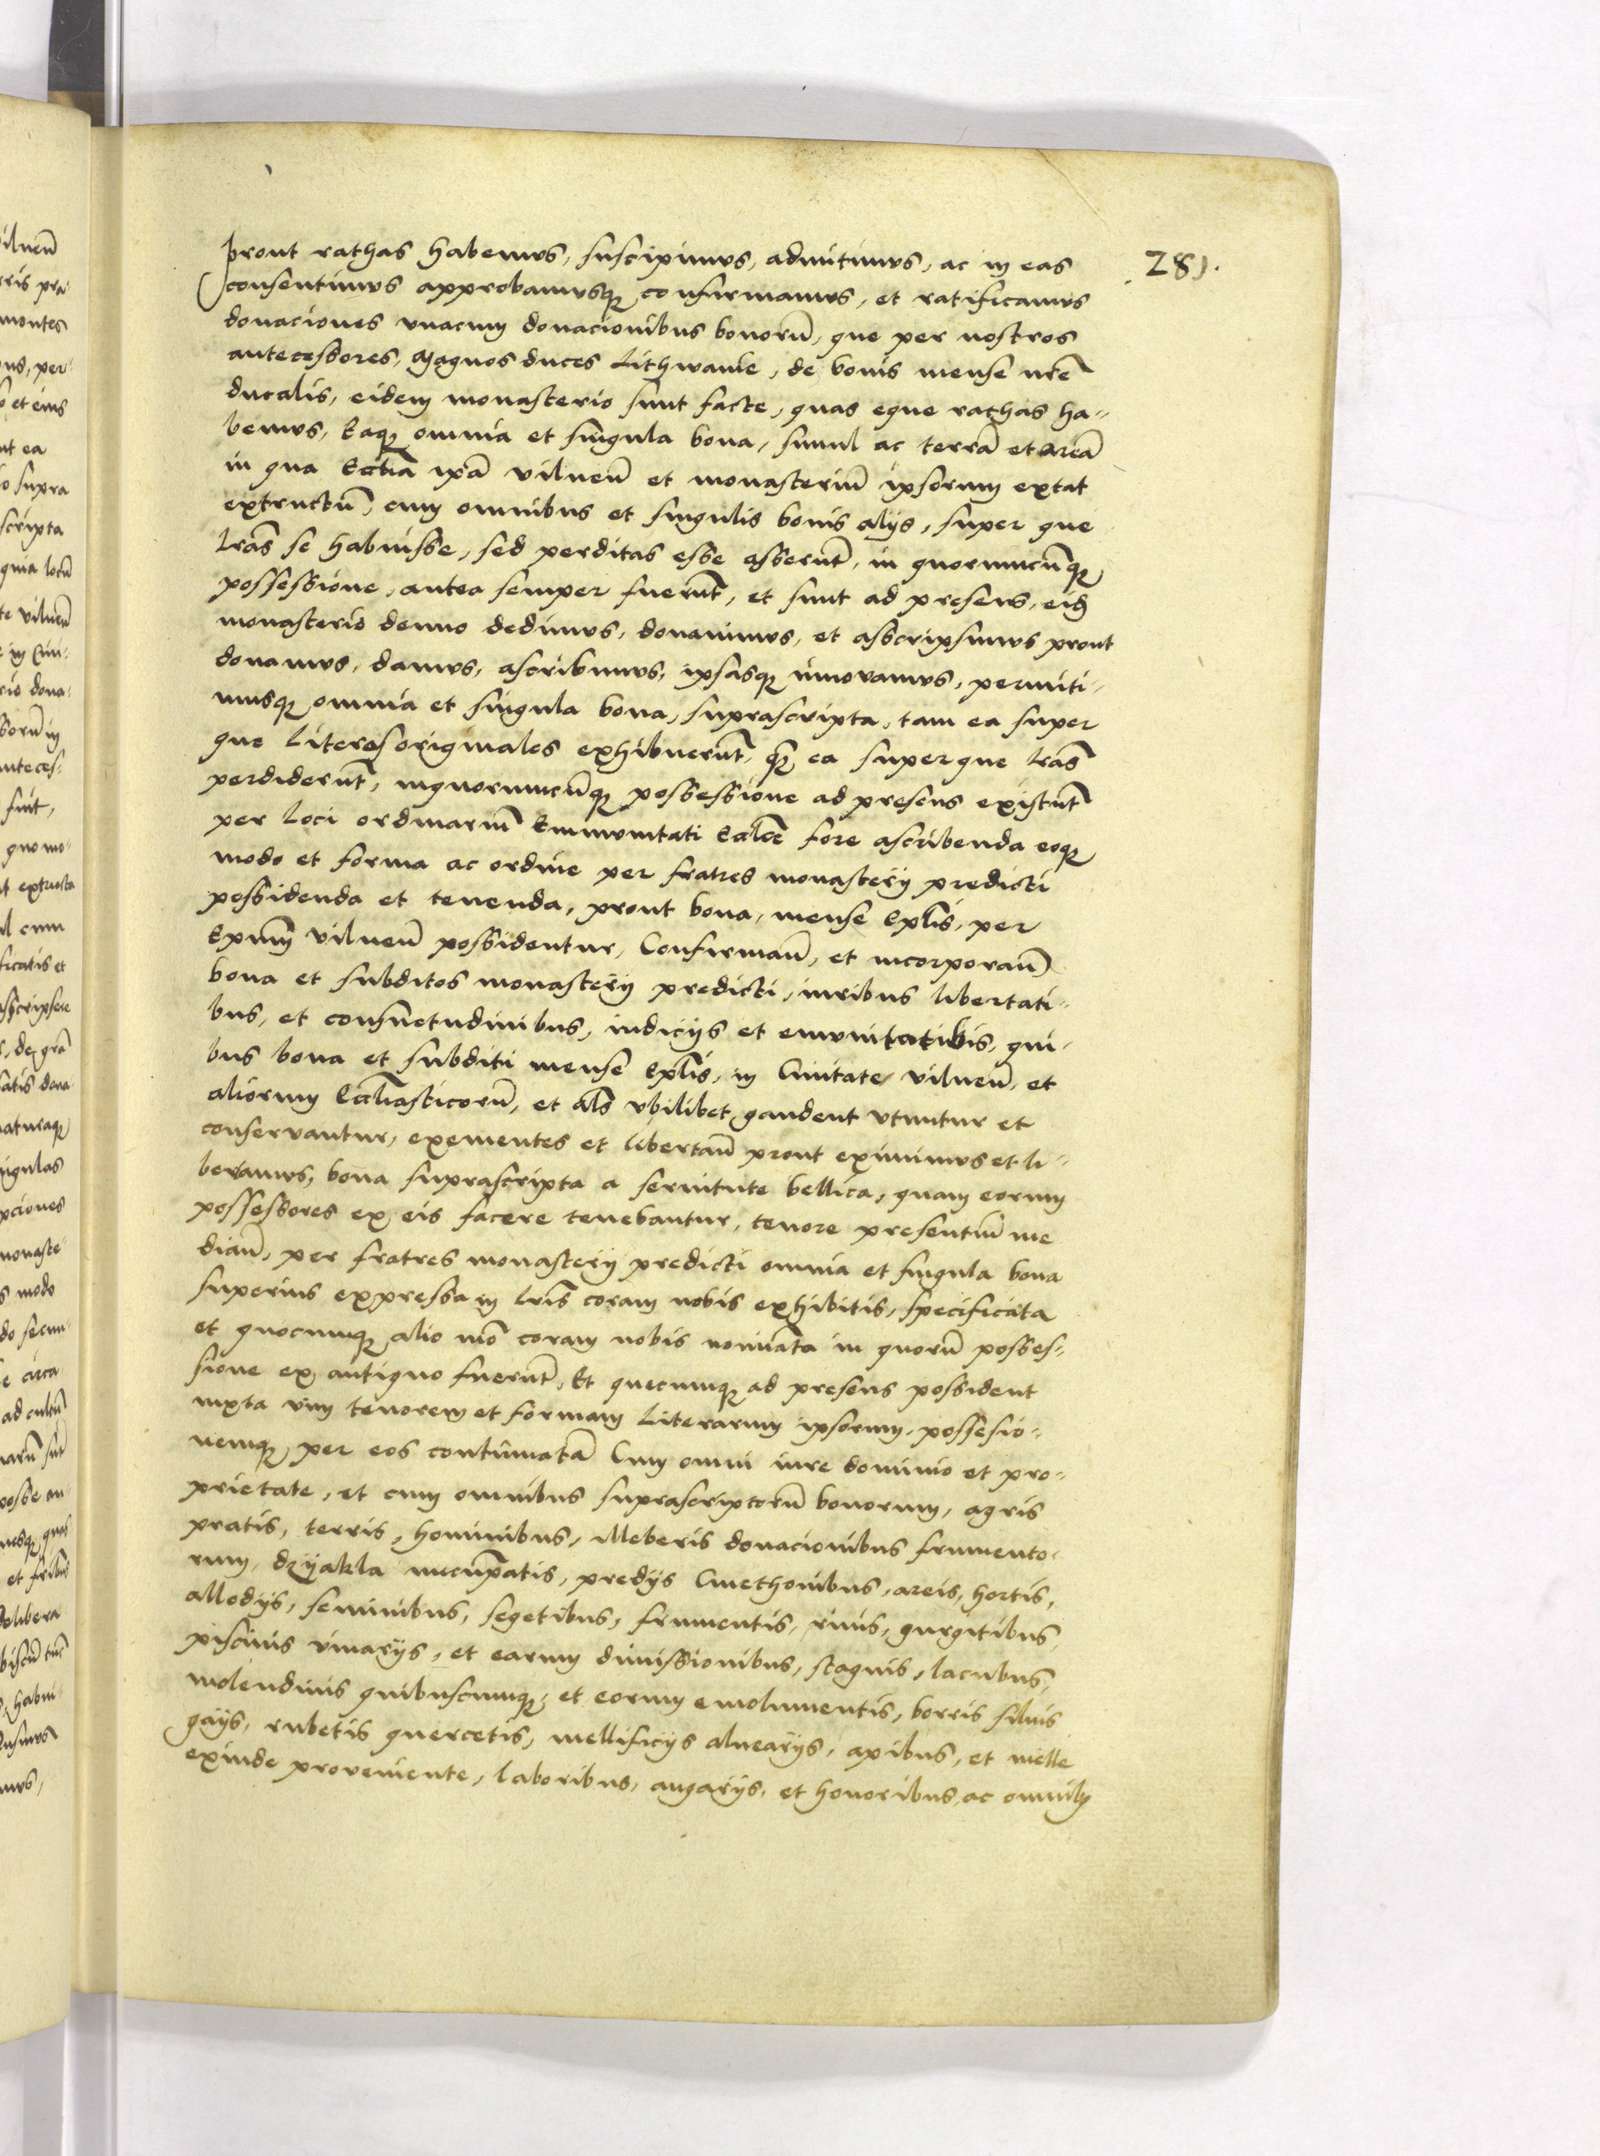 281.
prout rathas habemus, suscipimus, admitimus, ac in eas
consentimus approbamusq confirmamus, et ratificamus
donaciones vnacum donacionibus bonorũ, que per nostros
antecessores, Magnos duces Lithwanie, de bonis mense nrẽ
ducalis, eidem monasterio sunt facte, quas eque rathas ha-
bemus, Eaq omnia et singula bona, simul ac terrã et areã
in qua Ecctia ipã vilneñ et monasteriũ ipsorum extat
extructũ, cum omnibus et singulis bonis alijs, super que
lrãs se habuisse, sed perditas esse asserũt, in quorumcũq
possessione, antea semper fuerũt, et sunt ad presens, eid
monasterio denuo dedimus, donauimus, et asscripsimus prout
donamus, damus, ascribimus, ipsasq innouamus, permiti-
musq omnia et singula bona, suprascripta, tam ea super
que literas originales exhibuerũt, q ea super que lrãs
perdiderũt, inquorumcũq possessione ad presens existũt
per loci ordinariũ Emmunitati Ecclce fore ascribenda eoq
modo et forma ac ordine per fratres monasterij predicti
possidenda et tenenda, prout bona, mense Eplis, per
Epum vilneñ possidentur, Confirmañ, et incorporañ
bona et subditos monasterij predicti, iuribus libertati-
bus, et consuetudinibus, iudicijs et emunitatibus, qui-
bus bona et subditi mense Eplis, in Ciuitate vilneñ, et
aliorum Ecctiasticorũ, et als vbilibet gaudent vtuntur et
conservantur, exementes et libertañ prout eximimus et li-
beramus, bona suprascripta a seruitute bellica, quam eorum
possessores ex eis facere tenebantur, tenore presentiũ me
diañ, per fratres monasterij predicti omnia et singula bona
superius expressa in lris coram nobis exhibitis, specificata
et quocumq alio mõ coram nobis noimata in quorũ posses-
sione ex antiquo fuerũt, Et quecumq ad presens possident
iuxta vim tenorem et formam literarum ipsorum, possesio-
nemq, per eos continuatã Cum omni iure dominio et pro-
prietate, et cum omnibus suprascriptorũ bonorum, agris
pratis, terris, hominibus, illeberis donacionibus frumento-
rum, dzyakla nucupatis, predijs Cmethonibus, areis, hortis,
allodijs, seminibus, segetibus, frumentis, riuis, gurgitibus,
piscinis viuarijs, et earum dimissionibus, stagnis, lacubus,
molendinis quibuscumq, et eorum emolumentis, borris siluis
gays, rubetis quercetis, mellificijs aluearijs, apibus, et melle
exinde proueniente, laboribus, angarijs, et honoribus, ac omnib